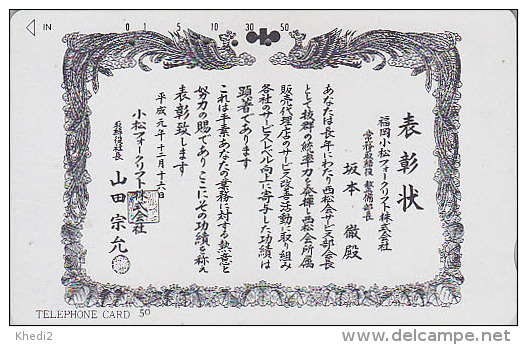 IN
0 1 5 10 30 50
表彰状
福岡小松フォークリフト株式会社
常務取締役 整備部長
坂本 徹殿
あなたは長年にわたり西松会サービス部会長
として抜群の統率力を発揮し西松会所属
販売代理店のサービス改善活動に取り組み
各社のサービスレベル向上に寄与した功績は
顕著であります
これは手素あなたの業務に対する熱意と
努力の賜であり ここにその功績を称え
表彰致します
平成元年十二月十六日
小松フォークリフト株式会社
取締役社長
山田宗允
TELEPHONE CARD 50
Khedi2
http://www.delcampe.net